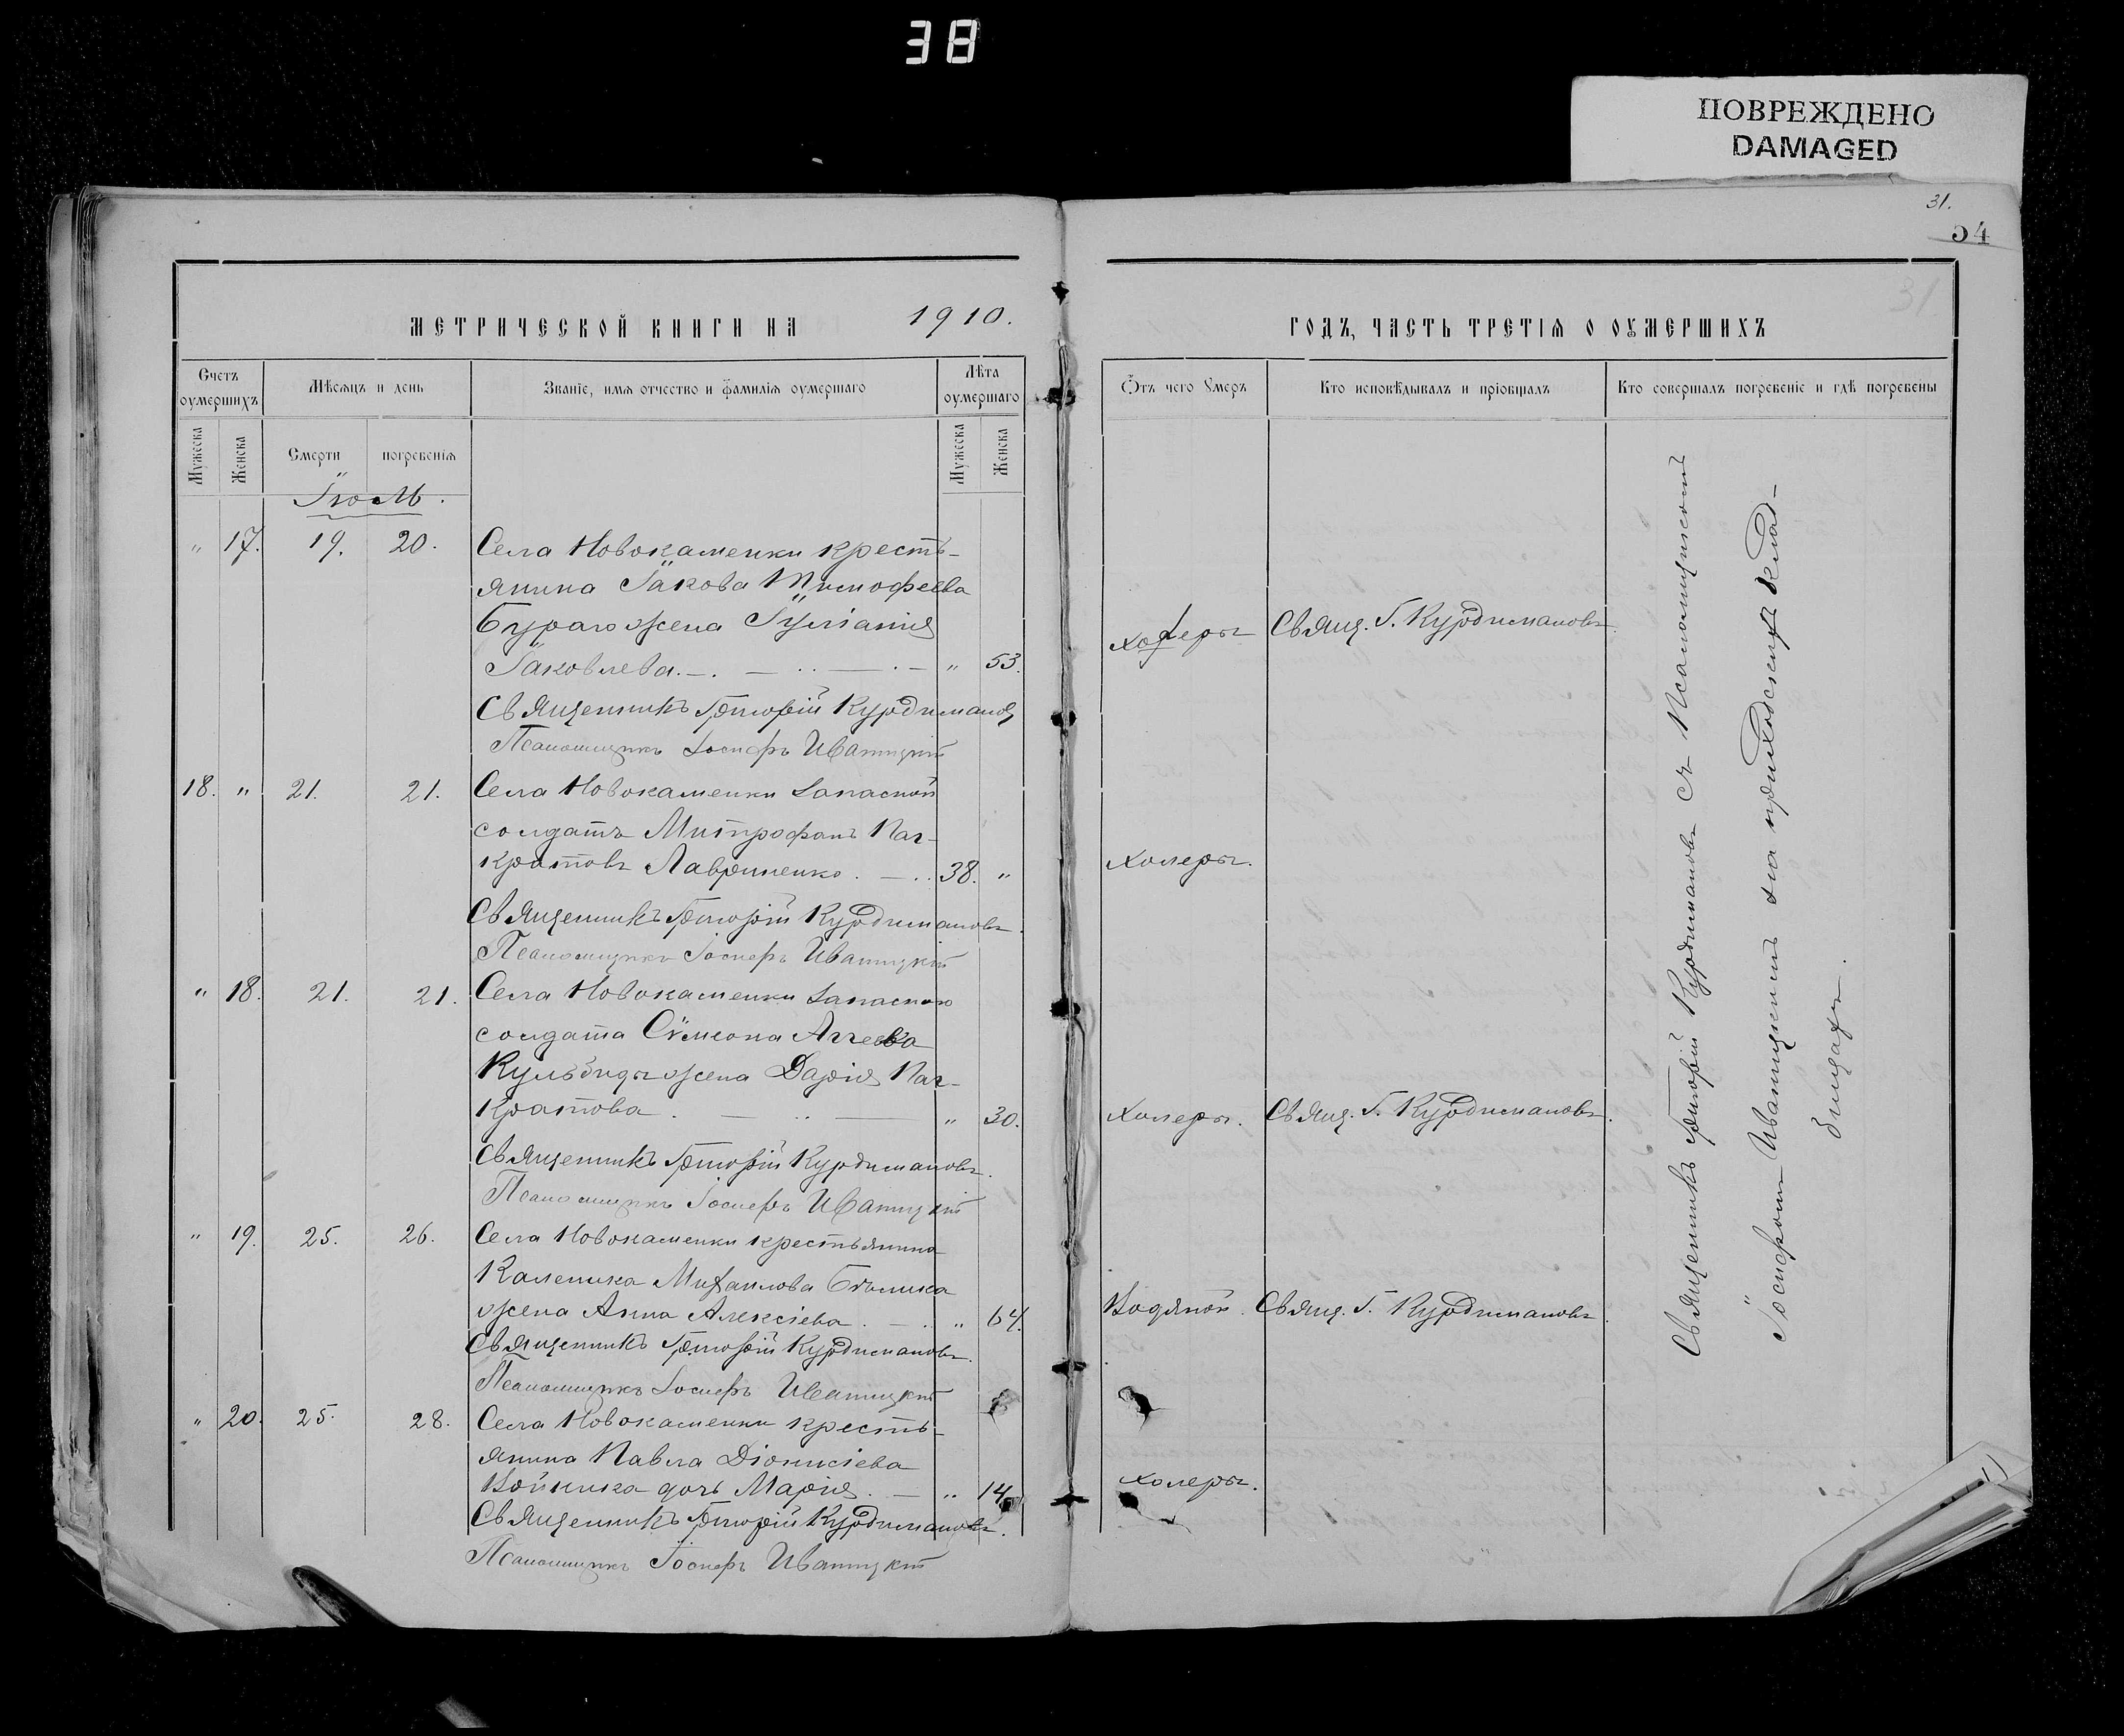 38
ПОВРЕЖДЕНО
DAMAGED
31.
54
31
МЕТРИЧЕСКОЙ КНИГИ НА 1910.
Счетъ оумершихъ
Мѣсяцъ и день
Званіе, имя отчество и фамилія оумершаго
Лѣта оумершаго
Мужеска
Женска
Смерти
погребенія
Мужеска
Женска
Іюль.
" 17. 19. 20. Села Новокаменки кресть-
янина Іакова Тимофеева
Бураго жена Іуліанія
Іаковлева. — " 53.
Священникъ Григорій Курдиманов
Псаломщикъ Іосифъ Иваницкій
18. " 21. 21. Села Новокаменки Запасной
солдатъ Митрофанъ Пан-
кратовъ Лавриненко. — 38. "
Священникъ Григорій Курдимановъ.
Псаломщикъ Іосифъ Иваницкій
" 18. 21. 21. Села Новокаменки Запасного
солдата Сѵмеона Аггеева
Кульбиды жена Дарія Пан-
кратова. — " 30.
Священникъ Григорій Курдимановъ.
Псаломщикъ Іосифъ Иваницкій
" 19. 25. 26. Села Новокаменки крестьянина
Каленика Михаилова Бѣлика
жена Анна Алексіева. — " 64.
Священникъ Григорій Курдимановъ.
Псаломщикъ Іосифъ Иваницкій
" 20. 25. 28. Села Новокаменки кресть-
янина Павла Діонисіева
Войника дочь Марія. — " 14
Священникъ Григорій Курдимановъ.
Псаломщикъ Іосифъ Иваницкій
ГОДЪ, ЧАСТЬ ТРЕТІЯ О ОУМЕРШИХЪ
Ѿтъ чего Умеръ
Кто исповѣдывалъ и пріобщалъ
Кто совершалъ погребеніе и гдѣ погребены
холеры Свящ. Г. Курдимановъ.
холеры.
холеры. Свящ. Г. Курдимановъ.
Водяной. Свящ. Г. Курдимановъ.
холеры.
Священникъ Григорій Курдимановъ съ Псаломщикомъ
Іосифомъ Иваницкимъ на приходскомъ клад-
бищахъ.